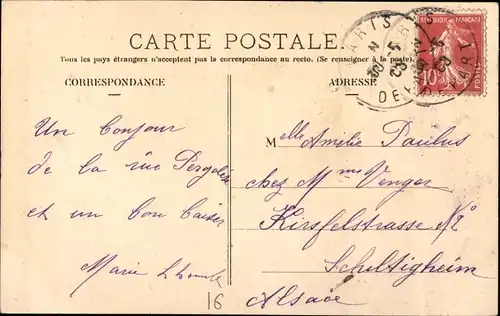 CARTE POSTALE.
Tous les pays étrangers n'acceptent pas la correspondance au recto. (Se renseigner à la poste).
CORRESPONDANCE
ADRESSE
RÉPUBLIQUE FRANÇAISE
10
POSTES
PARIS
PARIS
DEPART
Un bonjour
de la rue Pergolèse
et un bon baiser
Marie
16
Melle Amélie Paulus
chez Mme Venger
Kirsfelstrasse No 2
Schiltigheim
Alsace